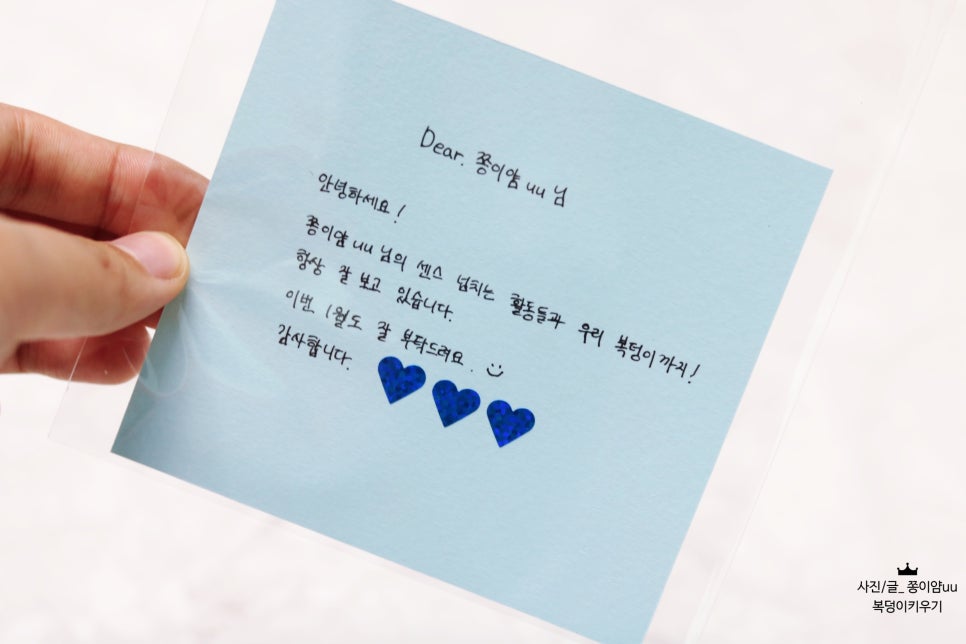 Dear. 쫑이얌uu 님
안녕하세요!
쫑이얌uu 님의 센스 넘치는 활동들과 우리 복덩이까지!
항상 잘 보고 있습니다.
이번 1월도 잘 부탁드려요. :)
감사합니다.
사진/글_ 쫑이얌uu
복덩이키우기